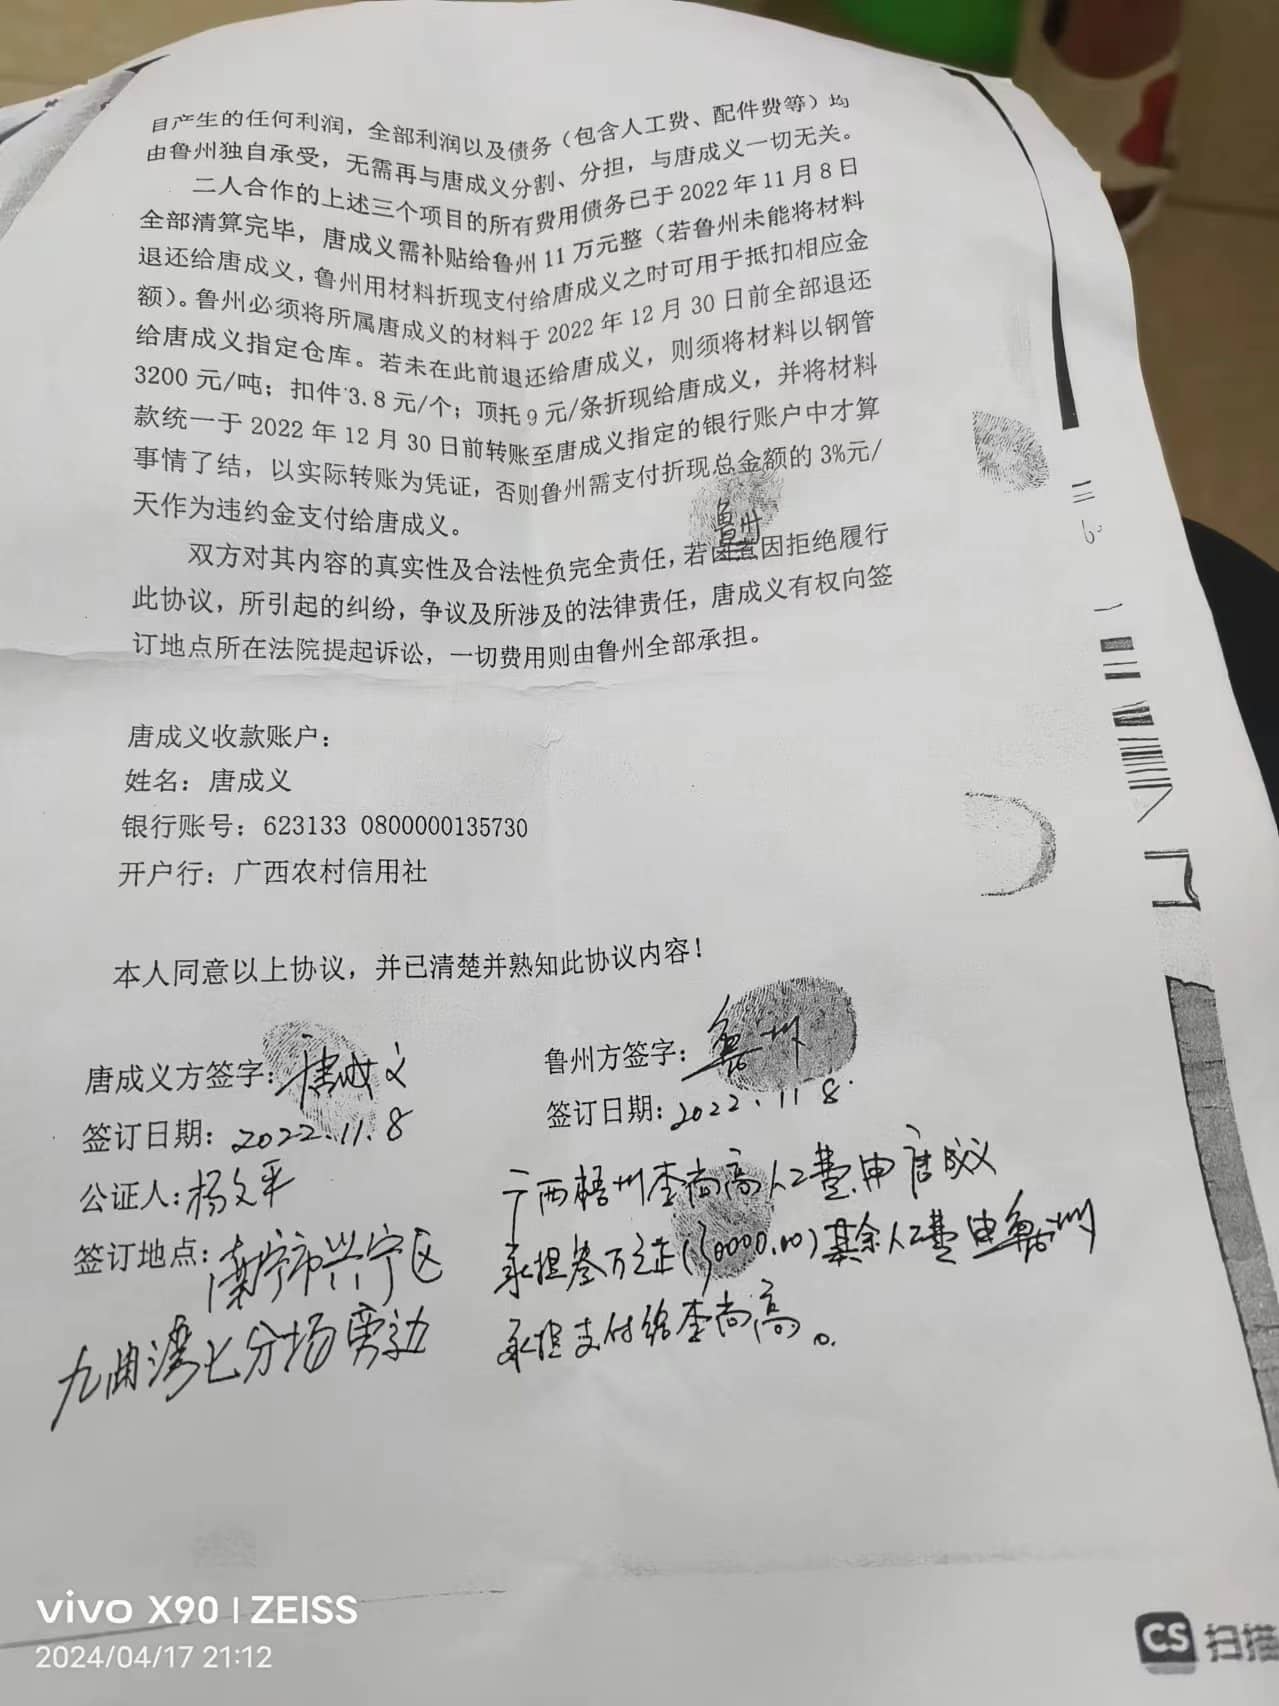 目产生的任何利润，全部利润以及债务（包含人工费、配件费等）均
由鲁州独自承受，无需再与唐成义分割、分担，与唐成义一切无关。
二人合作的上述三个项目的所有费用债务已于 2022 年 11 月 8 日
全部清算完毕，唐成义需补贴给鲁州 11 万元整（若鲁州未能将材料
退还给唐成义，鲁州用材料折现支付给唐成义之时可用于抵扣相应金
额）。鲁州必须将所属唐成义的材料于 2022 年 12 月 30 日前全部退还
给唐成义指定仓库。若未在此前退还给唐成义，则须将材料以钢管
3200 元/吨；扣件 3.8 元/个；顶托 9 元/条折现给唐成义，并将材料
款统一于 2022 年 12 月 30 日前转账至唐成义指定的银行账户中才算
事情了结，以实际转账为凭证，否则鲁州需支付折现总金额的 3%元/
天作为违约金支付给唐成义。
鲁州
双方对其内容的真实性及合法性负完全责任，若因拒绝履行
此协议，所引起的纠纷，争议及所涉及的法律责任，唐成义有权向签
订地点所在法院提起诉讼，一切费用则由鲁州全部承担。
唐成义收款账户：
姓名：唐成义
银行账号：623133 0800000135730
开户行：广西农村信用社
本人同意以上协议，并已清楚并熟知此协议内容！
唐成义方签字：唐成义
鲁州方签字：鲁州
签订日期：2022.11.8
签订日期：2022.11 8.
公证人：杨文平
签订地点：南宁市兴宁区
九曲湾七分场旁边
广西梧州李尚高人工费由唐成义
承担叁万元正(30000.00)其余人工费由鲁州
承担支付给李尚高。
vivo X90 | ZEISS
2024/04/17 21:12
CS 扫描